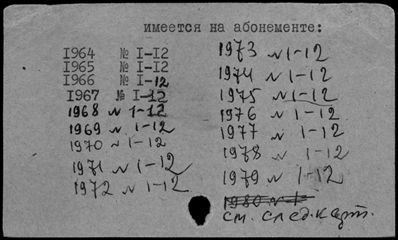 имеется на абонементе:
1964 № I-I2
1965 № I-I2
1966 № I-12
1967 № I-12
1968 № 1-12
1969 № 1-12
1970 № 1-12
1971 № 1-12
1972 № 1-12
1973 № 1-12
1974 № 1-12
1975 № 1-12
1976 № 1-12
1977 № 1-12
1978 № 1-12
1979 № 1-12
1980 № 1
см. след. карт.